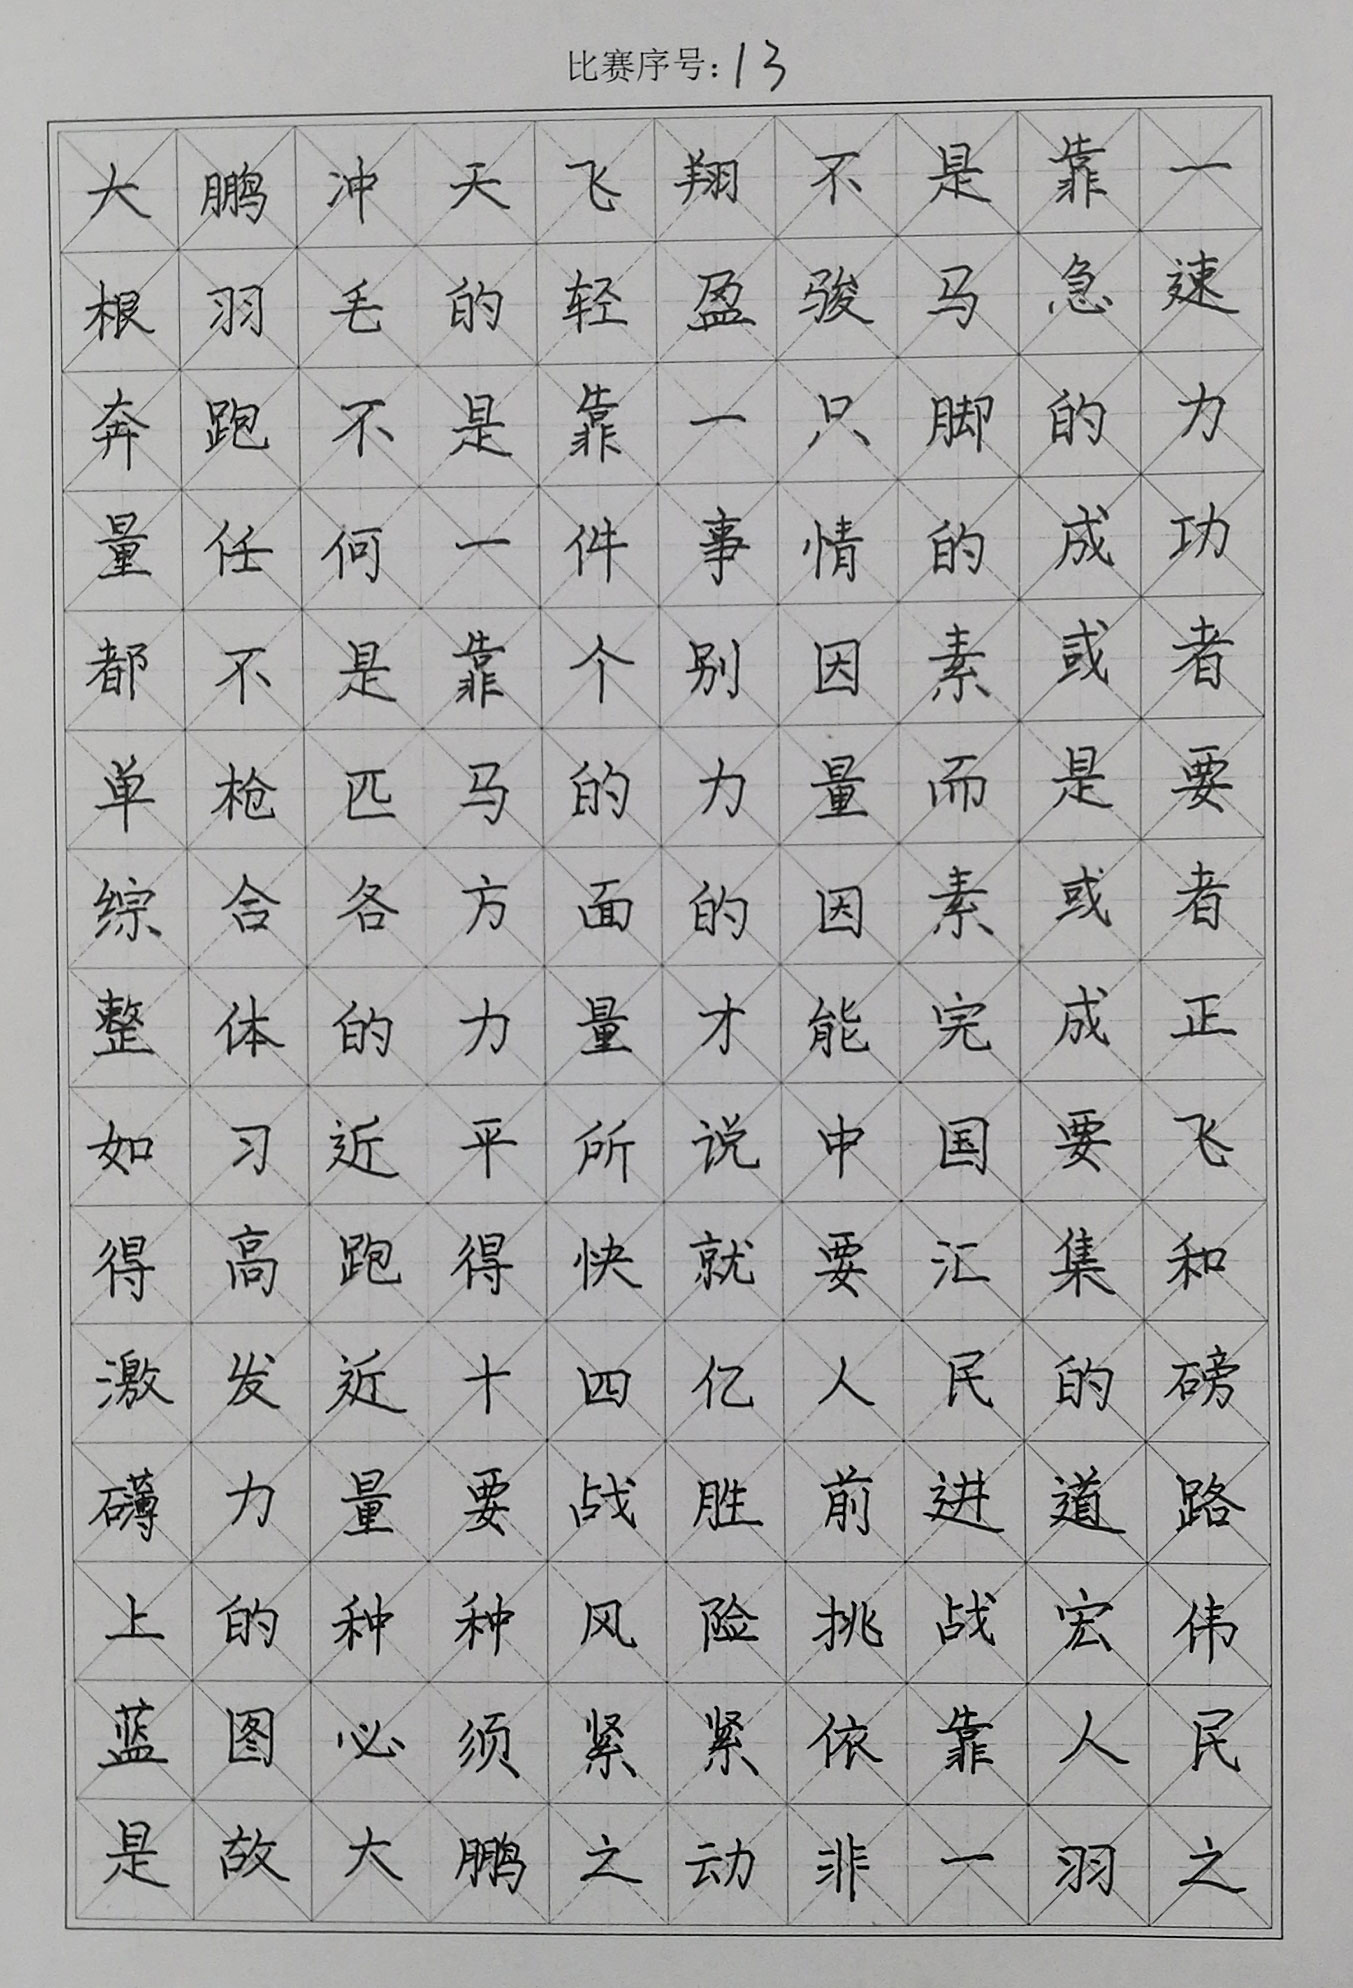 比赛序号:13
大鹏冲天飞翔不是靠一
根羽毛的轻盈骏马急速
奔跑不是靠一只脚的力
量任何一件事情的成功
都不是靠个别因素或者
单枪匹马的力量而是要
综合各方面的因素或者
整体的力量才能完成正
如习近平所说中国要飞
得高跑得快就要汇集和
激发近十四亿人民的磅
礴力量要战胜前进道路
上的种种风险挑战宏伟
蓝图必须紧紧依靠人民
是故大鹏之动非一羽之